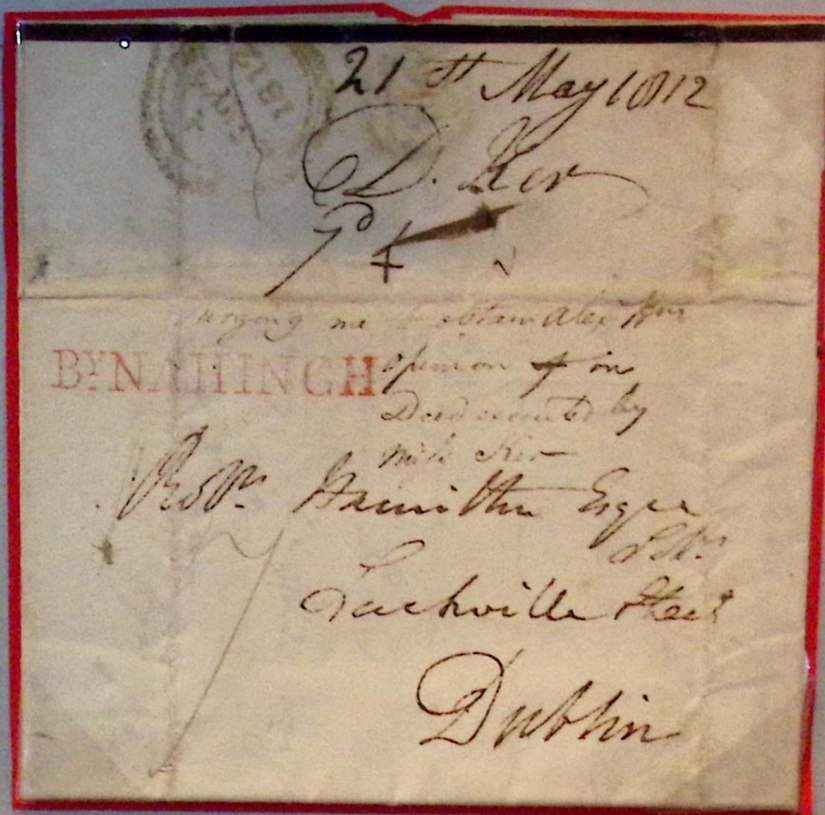 21st May 1812
D. Ker
7d
urging me obtain Alexr
opinion on
Deed executed by
Miss Ker
BYNAHINCH
Robt. Hamilton Esqre
Sackville Street
Dublin
MY
1812